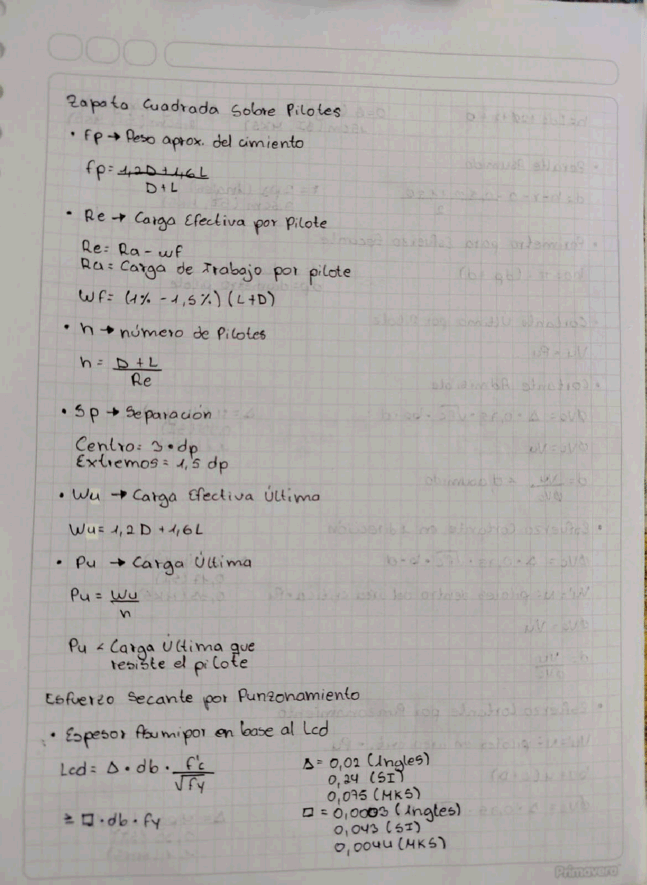 Zapata Cuadrada Sobre Pilotes
• fp → Peso aprox. del cimiento
fp = 1,2D + 1,6L
D + L
• Re → Carga Efectiva por Pilote
Re = Ra - wf
Ra = Carga de Trabajo por pilote
Wf = (1% - 1,5%) (L+D)
• n → número de Pilotes
n = D + L
Re
• Sp → Separación
Centro: 3 • dp
Extremos = 1,5 dp
• Wu → Carga Efectiva Última
Wu = 1,2 D + 1,6L
• Pu → Carga Última
Pu = Wu
n
Pu < Carga Última que
resiste el pilote
Esfuerzo Secante por Punzonamiento
• Espesor Asumipor en base al Lcd
Lcd = Δ • db • f'c
√fy
≥ □ • db • fy
Δ = 0,02 (Ingles)
0,24 (SI)
0,075 (MKS)
□ = 0,0003 (Ingles)
0,043 (SI)
0,0044 (MKS)
Primavera